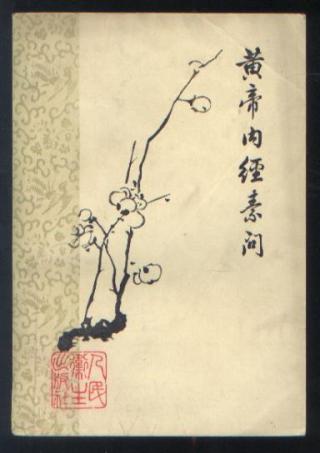 黄帝内經素问
人民
衞生
出版社